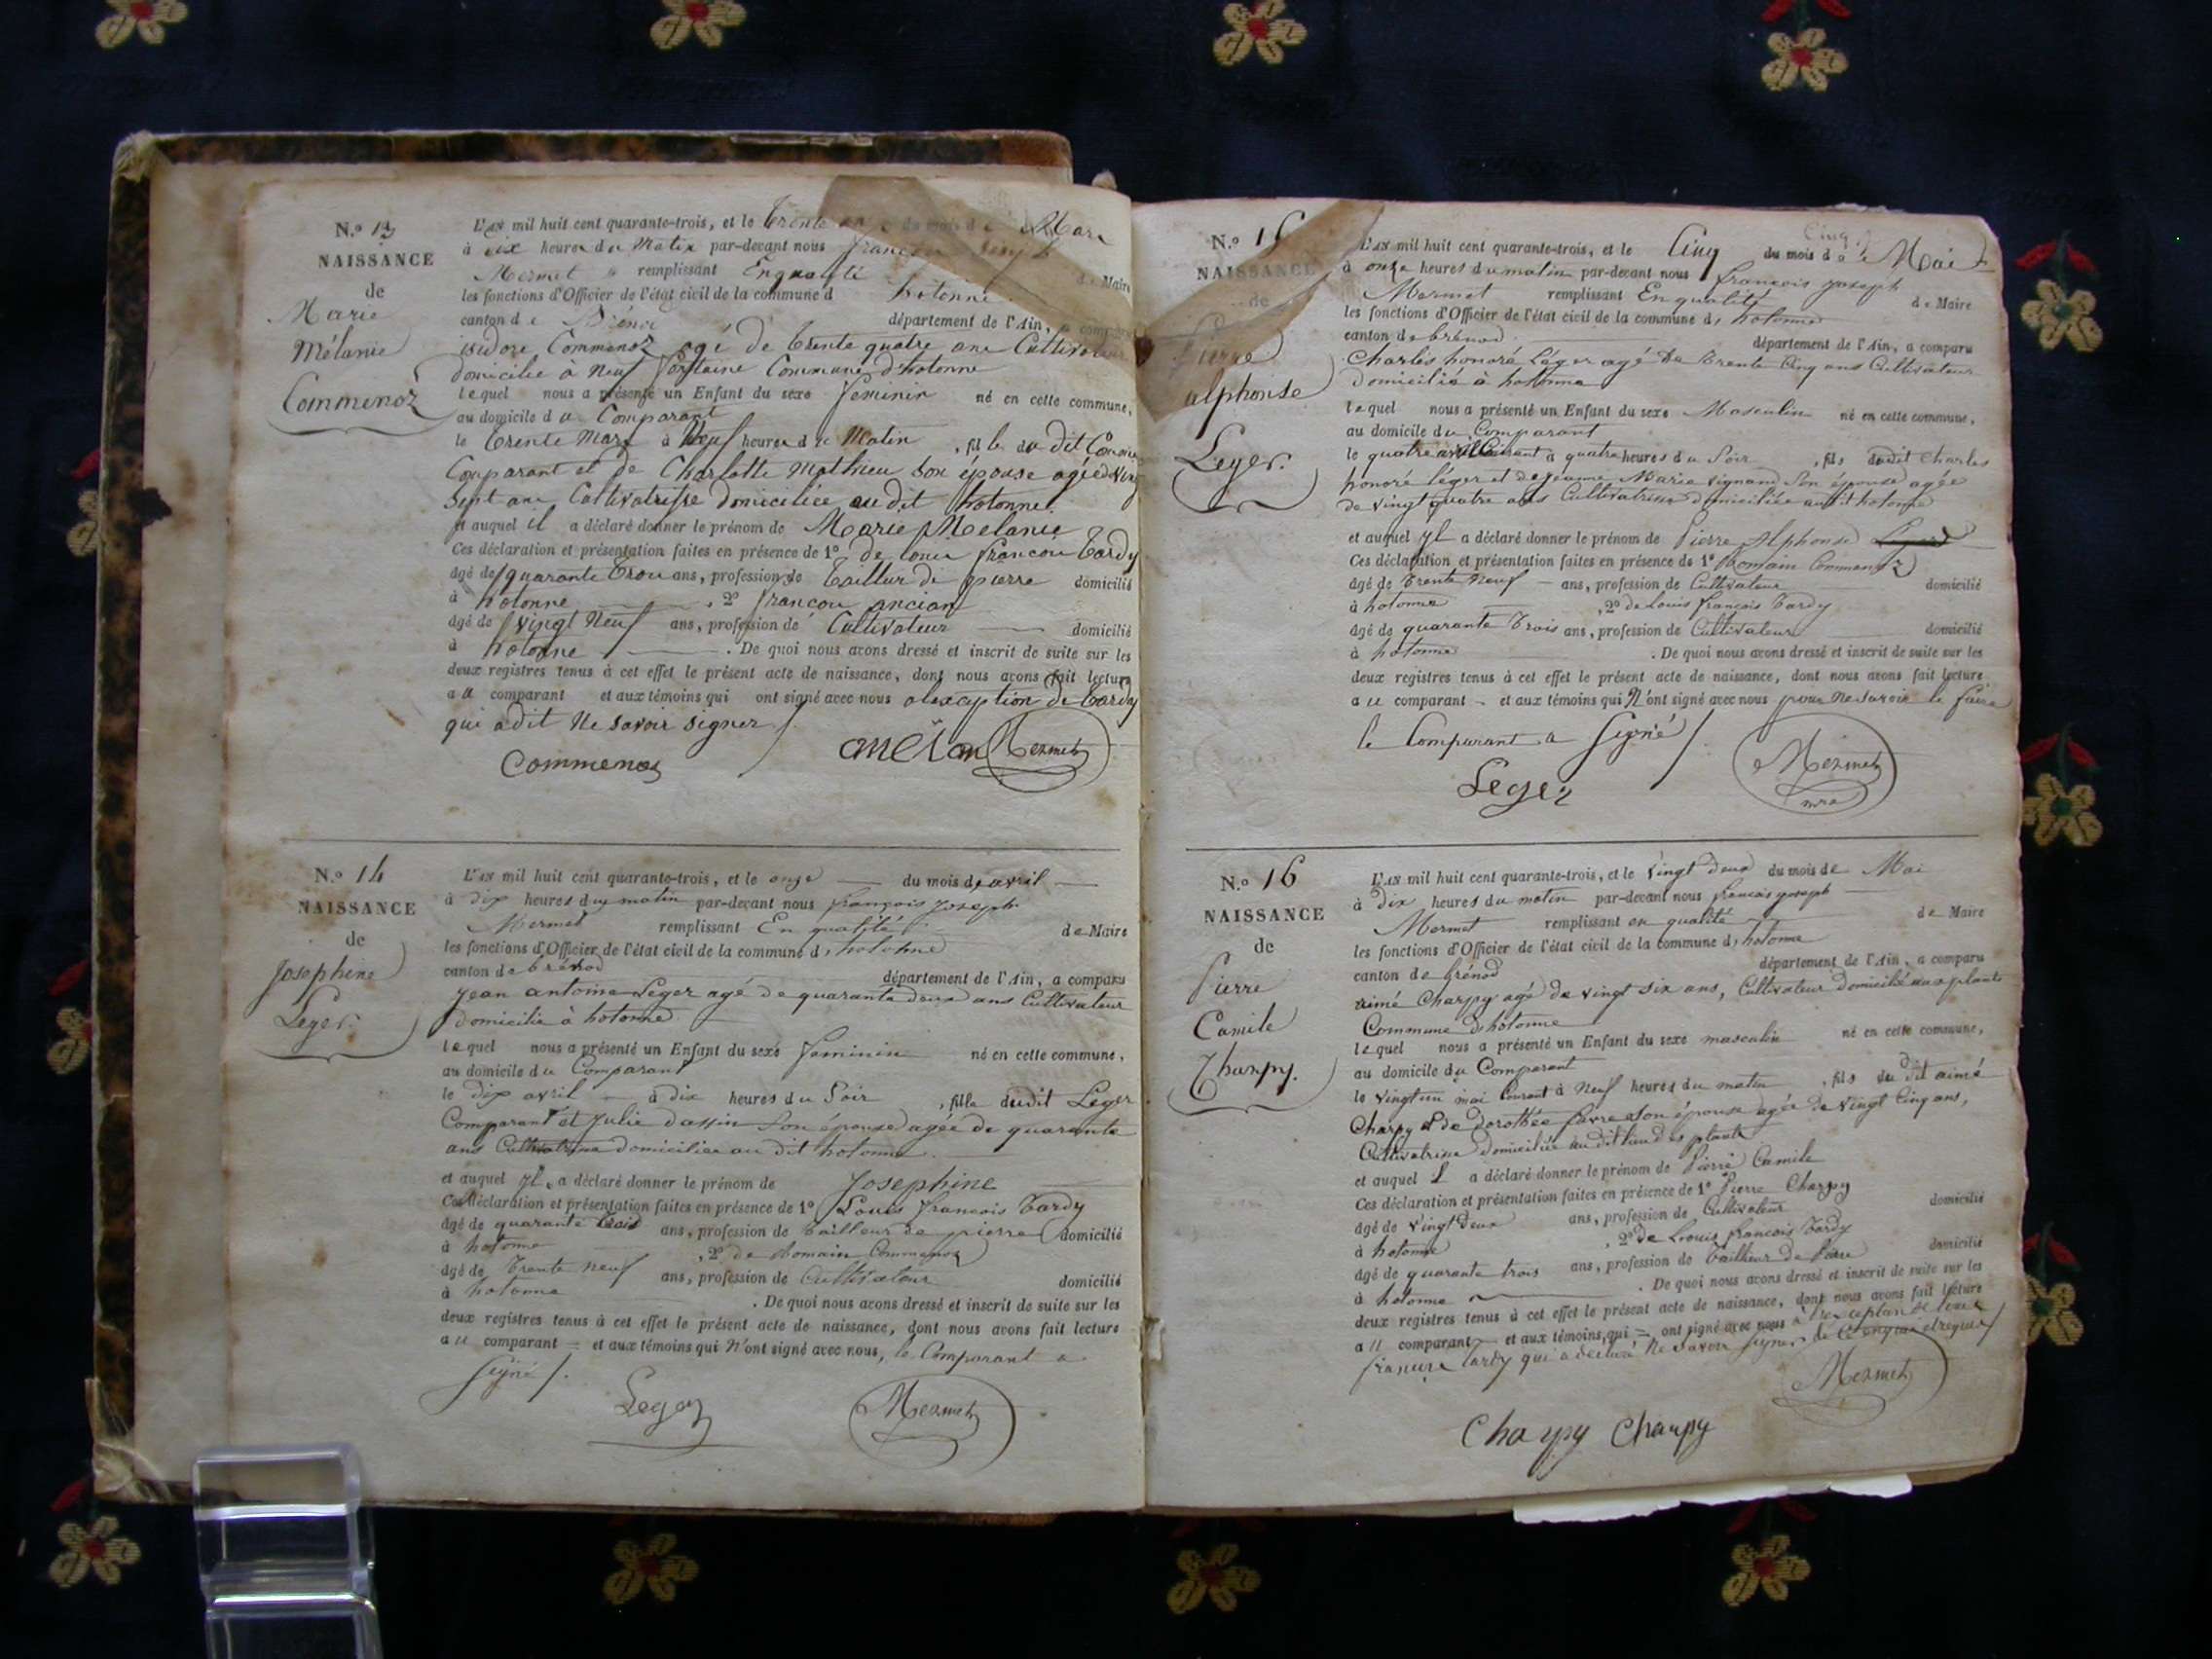 N.o 13
NAISSANCE
de
Marie
Mélanie
Commenoz
L'AN mil huit cent quarante-trois, et le trente du mois de Mars
à dix heures du Matin par-devant nous
Mermet remplissant En qualité de Maire
les fonctions d'Officier de l'état civil de la commune d hotonne
canton de département de l'Ain, a comparu
isidore Commenoz agé de trente quatre ans Cultivateur
domicilié a Neuf fontaine Commune d'hotonne
lequel nous a présenté un Enfant du sexe feminin né en cette commune,
au domicile du Comparant
le trente Mars à Neuf heures du Matin , fille du dit
Comparant et de Charlotte Mathieu Son épouse agée de ving
Sept ans Cultivatrisse domiciliée audit hotonne
et auquel il a déclaré donner le prénom de Marie Melanie
Ces déclaration et présentation faites en présence de 1o de Louis francois tardy
âgé de quarante trois ans, profession de tailleur de pierre domicilié
à hotonne , 2o francois ancian
âgé de vingt Neuf ans, profession de Cultivateur domicilié
à hotonne . De quoi nous avons dressé et inscrit de suite sur les
deux registres tenus à cet effet le présent acte de naissance, dont nous avons fait lecture
au comparant et aux témoins qui ont signé avec nous alexception de tardy
qui a dit Ne savoir signer /.
Commenoz Mermet
N.o 14
NAISSANCE
de
Josephine
Leger.
L'AN mil huit cent quarante-trois, et le onze du mois de avril
à dix heures du matin par-devant nous françois Joseph
Mermet remplissant En qualité de Maire
les fonctions d'Officier de l'état civil de la commune d, hotonne
canton de brénod département de l'Ain, a comparu
jean antoine Leger agé de quarante deux ans Cultivateur
domicilié à hotonne.
lequel nous a présenté un Enfant du sexe feminin né en cette commune,
au domicile du Comparant
le dix avril à dix heures du Soir , fille dudit Leger
Comparant et Julie dassin Son épouse agée de quarante
ans Cultivatrisse domiciliée au dit hotonne.
et auquel yl a déclaré donner le prénom de Josephine
Ces déclaration et présentation faites en présence de 1o Louis francois tardy
âgé de quarante trois ans, profession de tailleur de pierre domicilié
à hotonne , 2o de Romain Commenoz
âgé de trente neuf ans, profession de Cultivateur domicilié
à hotonne . De quoi nous avons dressé et inscrit de suite sur les
deux registres tenus à cet effet le présent acte de naissance, dont nous avons fait lecture
au comparant et aux témoins qui n'ont signé avec nous, le Comparant a
signé /.
Leger Mermet
N.o
NAISSANCE
de
Pierre
alphonse
Leger.
L'AN mil huit cent quarante-trois, et le Cinq du mois de Mai
à onze heures du matin par-devant nous françois joseph
Mermet remplissant En qualité de Maire
les fonctions d'Officier de l'état civil de la commune d, hotonne
canton de brénod département de l'Ain, a comparu
Charles honoré Léger agé de trente Cinq ans Cultivateur
domicilié à hotonne
lequel nous a présenté un Enfant du sexe Masculin né en cette commune,
au domicile du Comparant
le quatre à quatre heures du Soir , fils dudit Charles
honoré léger et de jeanne Marie vignand Son épouse agée
de vingt quatre ans Cultivatrisse domiciliée audit hotonne
et auquel yl a déclaré donner le prénom de Pierre Alphonse
Ces déclaration et présentation faites en présence de 1o Romain Commenoz
âgé de trente Neuf ans, profession de Cultivateur domicilié
à hotonne , 2o de Louis françois tardy
âgé de quarante trois ans, profession de Cultivateur domicilié
à hotonne . De quoi nous avons dressé et inscrit de suite sur les
deux registres tenus à cet effet le présent acte de naissance, dont nous avons fait lecture
au comparant et aux témoins qui N'ont signé avec nous pour ne savoir le faire
le Comparant a Signé /.
Leger Mermet
mre
N.o 16
NAISSANCE
de
Pierre
Camile
Charpy.
L'AN mil huit cent quarante-trois, et le vingt deux du mois de Mai
à dix heures du matin par-devant nous francois joseph
Mermet remplissant en qualité de Maire
les fonctions d'Officier de l'état civil de la commune d, hotonne
canton de brénod département de l'Ain, a comparu
aimé Charpy agé de vingt six ans, Cultivateur domicilié aux plants
Commune d'hotonne
lequel nous a présenté un Enfant du sexe masculin né en cette commune,
au domicile du Comparant
le vingt un mai Courant à Neuf heures du matin , fils du dit aimé
Charpy et de dorothée favre son épouse agée de vingt Cinq ans,
Cultivatrisse domiciliée audit lieu des plants
et auquel il a déclaré donner le prénom de Pierre Camile
Ces déclaration et présentation faites en présence de 1o Pierre Charpy
âgé de vingt deux ans, profession de Cultivateur domicilié
à hotonne , 2o de Louis françois tardy
âgé de quarante trois ans, profession de tailleur de Pierre domicilié
à hotonne . De quoi nous avons dressé et inscrit de suite sur les
deux registres tenus à cet effet le présent acte de naissance, dont nous avons fait lecture
au comparant et aux témoins, qui ont signé avec nous
tardy qui a déclaré Ne savoir signer de Ce enquis et requis /
Mermet
Charpy Charpy